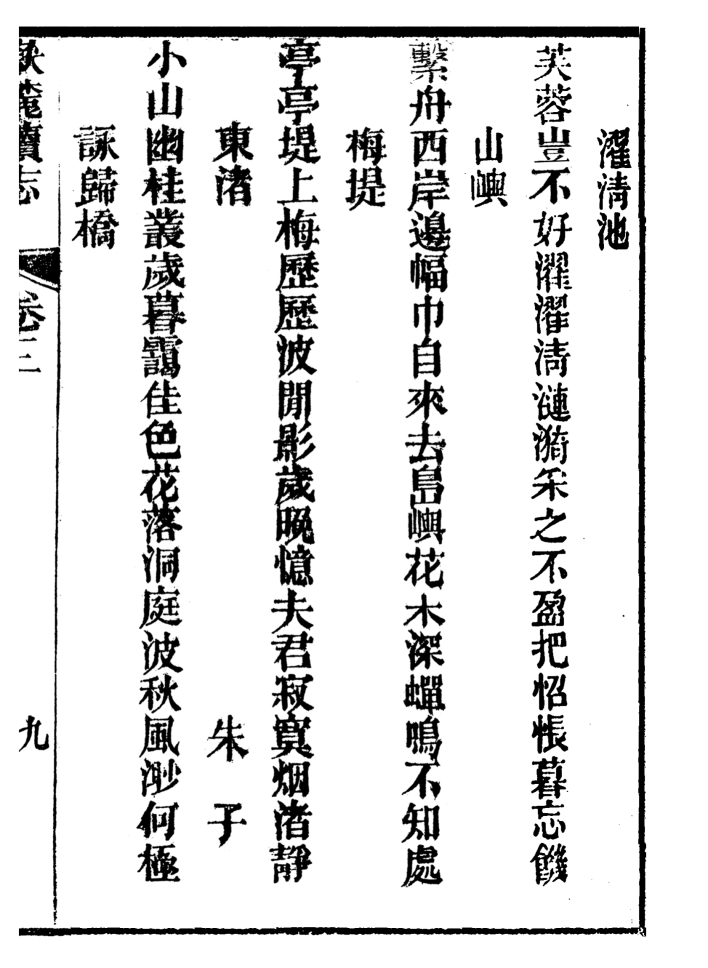 濯清池
芙蓉豈不好濯濯清漣漪采之不盈把怊悵暮忘饑
山嶼
繫舟西岸邊幅巾自來去島嶼花木深蟬鳴不知處
梅堤
亭亭堤上梅歷歷波閒影歲晚憶夫君寂寞烟渚靜
東渚 朱子
小山幽桂叢歲暮靄佳色花落洞庭波秋風渺何極
詠歸橋
麓續志 卷三 九